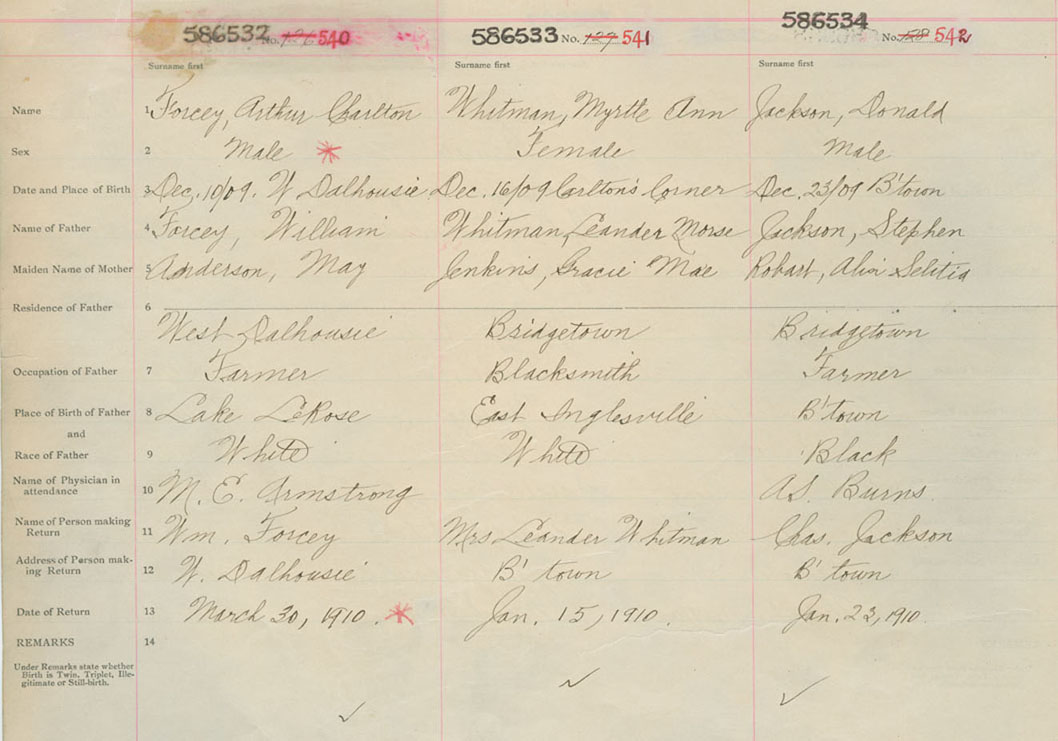 586532 No. 126 540 586533 No. 127 541 586534 No. 128 542
Surname first Surname first Surname first
Name 1 Forcey, Arthur Charlton Whitman, Myrtle Ann Jackson, Donald
Sex 2 Male * Female Male
Date and Place of Birth 3 Dec. 10/09. W Dalhousie Dec. 16/09 Carlton's Corner Dec. 23/09 B'town
Name of Father 4 Forcey, William Whitman, Leander Morse Jackson, Stephen
Maiden Name of Mother 5 Anderson, May Jenkins, Gracie Mae Robart,
Residence of Father 6
West Dalhousie Bridgetown Bridgetown
Occupation of Father 7 Farmer Blacksmith Farmer
Place of Birth of Father 8 Lake LeRose East Inglesville B'town
and
Race of Father 9 White White Black
Name of Physician in
attendance 10 M. E. Armstrong A.S. Burns.
Name of Person making
Return 11 Wm. Forcey Mrs Leander Whitman Chas. Jackson
Address of Person mak-
ing Return 12 W. Dalhousie B' town B' town
Date of Return 13 March 30, 1910. * Jan. 15, 1910. Jan. 22, 1910.
REMARKS 14
Under Remarks state whether
Birth is Twin, Triplet, Ille-
gitimate or Still-birth.